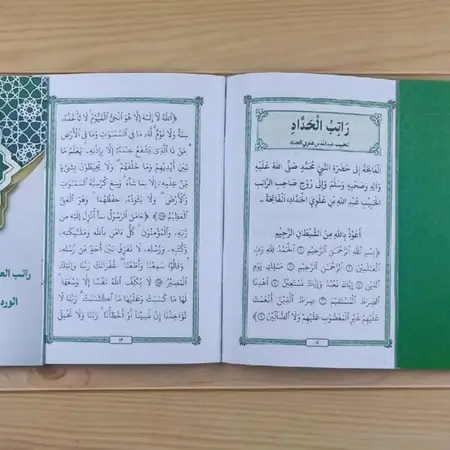 رَاتِبُ الْحَدَّادِ
للحبيب عبد الله بن علوي الحداد
اَلْفَاتِحَةُ إِلَى حَضْرَةِ النَّبِيِّ مُحَمَّدٍ صَلَّى اللهُ عَلَيْهِ
وَآلِهِ وَصَحْبِهِ وَسَلَّمَ وَإِلَى رُوْحِ صَاحِبِ الرَّاتِبِ
الْحَبِيْبِ عَبْدِ اللهِ بْنِ عَلَوِيْ الْحَدَّادِ، اَلْفَاتِحَةْ ...
أَعُوْذُ بِاللهِ مِنَ الشَّيْطَانِ الرَّجِيْمِ
﴿بِسْمِ ٱللَّهِ ٱلرَّحْمَٰنِ ٱلرَّحِيمِ ۝١ ٱلْحَمْدُ لِلَّهِ رَبِّ
ٱلْعَٰلَمِينَ ۝٢ ٱلرَّحْمَٰنِ ٱلرَّحِيمِ ۝٣ مَٰلِكِ يَوْمِ
ٱلدِّينِ ۝٤ إِيَّاكَ نَعْبُدُ وَإِيَّاكَ نَسْتَعِينُ ۝٥ ٱهْدِنَا
ٱلصِّرَٰطَ ٱلْمُسْتَقِيمَ ۝٦ صِرَٰطَ ٱلَّذِينَ أَنْعَمْتَ
عَلَيْهِمْ غَيْرِ ٱلْمَغْضُوبِ عَلَيْهِمْ وَلَا ٱلضَّآلِّينَ ۝٧﴾
﴿ٱللَّهُ لَآ إِلَٰهَ إِلَّا هُوَ ٱلْحَىُّ ٱلْقَيُّومُ لَا تَأْخُذُهُۥ
سِنَةٌ وَلَا نَوْمٌ لَّهُۥ مَا فِى ٱلسَّمَٰوَٰتِ وَمَا فِى ٱلْأَرْضِ
مَن ذَا ٱلَّذِى يَشْفَعُ عِندَهُۥٓ إِلَّا بِإِذْنِهِۦ يَعْلَمُ مَا
بَيْنَ أَيْدِيهِمْ وَمَا خَلْفَهُمْ وَلَا يُحِيطُونَ بِشَىْءٍ
مِّنْ عِلْمِهِۦٓ إِلَّا بِمَا شَآءَ وَسِعَ كُرْسِيُّهُ ٱلسَّمَٰوَٰتِ
وَٱلْأَرْضَ وَلَا يَـُٔودُهُۥ حِفْظُهُمَا وَهُوَ ٱلْعَلِىُّ
ٱلْعَظِيمُ﴾ ﴿ءَامَنَ ٱلرَّسُولُ بِمَآ أُنزِلَ إِلَيْهِ مِن
رَّبِّهِۦ وَٱلْمُؤْمِنُونَ كُلٌّ ءَامَنَ بِٱللَّهِ وَمَلَٰٓئِكَتِهِۦ
وَكُتُبِهِۦ وَرُسُلِهِۦ لَا نُفَرِّقُ بَيْنَ أَحَدٍ مِّن رُّسُلِهِۦ
وَقَالُوا۟ سَمِعْنَا وَأَطَعْنَا غُفْرَانَكَ رَبَّنَا وَإِلَيْكَ
ٱلْمَصِيرُ لَا يُكَلِّفُ ٱللَّهُ نَفْسًا إِلَّا وُسْعَهَا
لَهَا مَا كَسَبَتْ وَعَلَيْهَا مَا ٱكْتَسَبَتْ رَبَّنَا لَا
تُؤَاخِذْنَآ إِن نَّسِينَآ أَوْ أَخْطَأْنَا رَبَّنَا وَلَا تَحْمِلْ
١٣
راتب